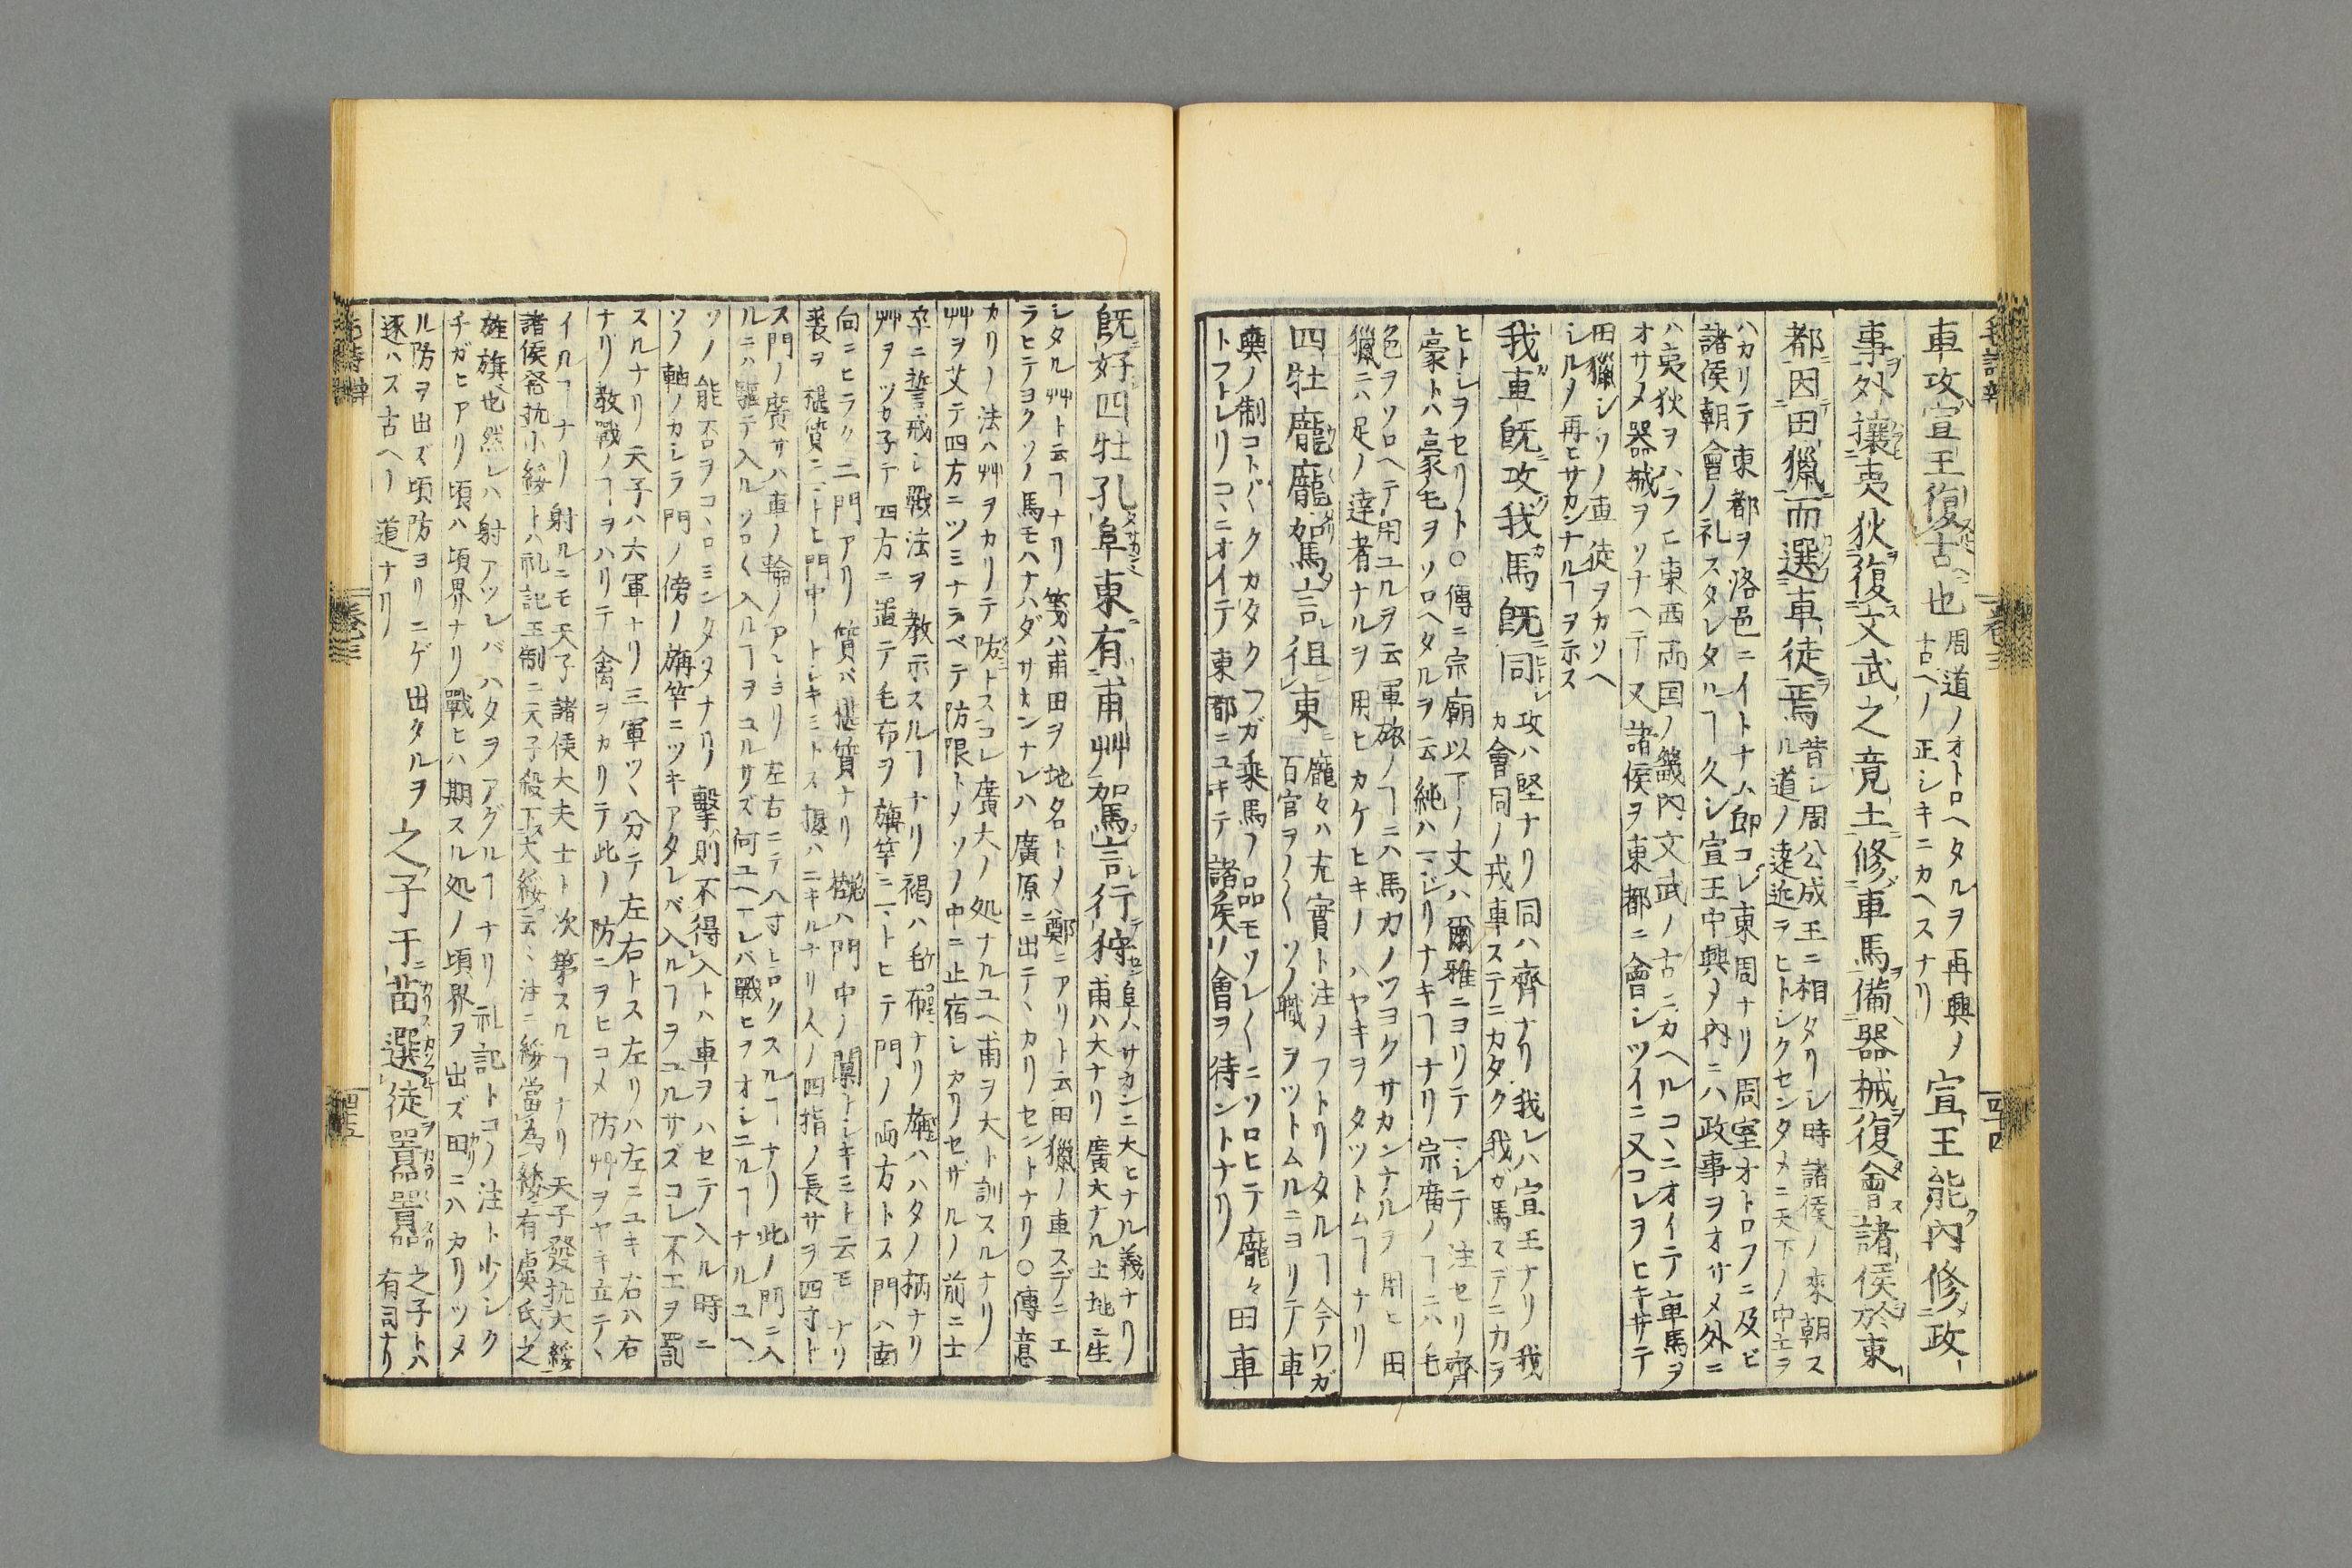 車攻宣王復古也 周道ノオトロヘタルヲ再興メ
古ヘノ正シキニカヘスナリ
宣王能内修政
事外攘夷狄復文武之竟土修車馬備器械復會諸侯於東
都因田獵而選車徒焉 昔シ周公成王ニ相タリシ時諸侯ノ來朝ス
ル道ノ遠近ヲヒトシクセンタメニ天下ノ中土ヲ
ハカリテ東都ヲ洛邑ニイトナム即コレ東周ナリ周室オトロフニ及ビ
諸侯朝會ノ礼スタレタルヿ久シ宣王中興メ内ニハ政事ヲオサメ外ニ
ハ夷狄ヲハラヒ東西両国ノ畿内文武ノ古ニカヘルコヽニオイテ車馬ヲ
オサメ器械ヲソナヘテ又諸侯ヲ東都ニ會シツイニ又コレヲヒキサテ
田獵シソノ車徒ヲカソヘ
シルメ再ヒサカンナルヿヲ示ス
我車既攻我馬既同 攻ハ堅ナリ同ハ齊ナリ我レハ宣王ナリ我
カ會同ノ戎車ステニカタク我ガ馬ステニカラ
ヒトシヲセリト○傳ニ宗廟以下ノ丈ハ爾雅ニヨリテ一シテ注セリ齊
豪トハ豪毛ヲソロヘタルヲ云純ハ一ジリナキヿナリ宗廟ノヿニハ毛
色ヲソロヘテ用ユルヲ云軍旅ノヿニハ馬力ノツヨクサカンナルヲ用ヒ田
獵ニハ足ノ達者ナルヲ用ヒカケヒキノハヤキヲタツトムヿナリ
四牡龐龐駕言徂東 龐々ハ充實ト注メフトリタルヿ今ワガ
百官ヲノ〱ソノ職ヲツトムルニヨリテ車
輿ノ制コトバ〱クカタクワガ乗馬ノ品モソレ〱ニソロヒテ龐々田車
トフトレリコヽニオイテ東都ニユキテ諸侯ノ會ヲ待ントナリ
既好四牡孔阜東有甫艸駕言行狩 阜ハサカンニ大ヒナル義ナリ
甫ハ大ナリ廣大ナル土地ニ生
シタル艸ト云ヿナリ箋ハ甫田ヲ地名トメ鄭ニアリト云田獵ノ車スデニエ
ラヒテヨクソノ馬モハナハダサカンナレハ廣原ニ出テヽカリセントナリ○傳意
カリノ法ハ艸ヲカリテ防トスコレ廣大ノ処ナルユヘ甫ヲ大ト訓スルナリ
艸ヲ艾テ四方ニツミナラベテ防限トメソノ中ニ止宿シカリノセザルノ前ニ士
卒ニ誓戒シ戰法ヲ教示スルヿナリ褐ハ毛布ナリ旃ハハタノ柄ナリ
艸ヲツカ子テ四方ニ置テ毛布ヲ旃竿ニヽトヒテ門ノ両方トス門ハ南
向ニヒラク二門アリ質ハ椹質ナリ槸ハ門中ノ闑トシキミト云モナリ
裘ヲ椹質ニヽトヒ門中ノトシキミトス握ハニキルナリ人ノ四指ノ長サヲ四寸ト
ス門ノ廣サハ車ノ輪ノアヒヨリ左右ニテ八寸ヒロクスルヿナリ此ノ門ニ入
ルニハ驅テ入ルソロ〱入ルヿヲユルサズ何ユヘナレバ戰ヒヲオシユルヿナルユヘ
ソノ能否ヲコヽロミンタメナリ擊則不得入トハ車ヲハセテ入ル時ニ
ソノ軸ノカシラ門ノ傍ノ旃竿ニツキアタレベ入ルヿヲユルサズコレ不工ヲ罰
スルナリ天子ハ六軍ナリ三軍ツヽ分テ左右トス左リハ左ニユキ右ハ右
ナリ教戰ノヿヲハリテ禽ヲカリテ此ノ防ニヲヒコメ防艸ヲヤキ立テヽ
イルヿナリ射ルニモ天子諸侯大夫士ト次第スルヿナリ天子發抗大綏
諸侯發抗小綏トハ礼記王制ニ天子殺下大綏云々注ニ綏當為緌有虞氏之
旌旗也然レハ射アツレバハタヲアグルヿナリ礼記トコノ注ト少シク
チガヒアリ頃ハ頃界ナリ戰ヒハ期スル処ノ頃界ヲ出ズ田ニハカリツメ
ル防ヲ出ズ頃防ヨリニゲ出タルヲ
逐ハズ古ヘノ道ナリ
之子于苗選徒囂囂 之子トハ
有司ナリ
卷三